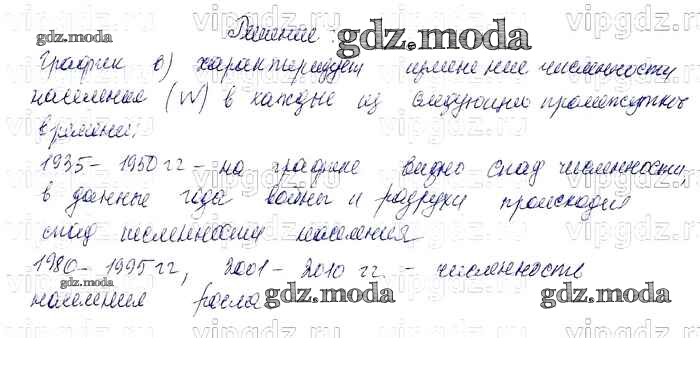 Решение:
График в) характеризует изменение численности
население (N) в каждые из следующих промежутков
времени:
1935-1950 гг - на графике видно спад численности,
в данные года войны и разрухи происходил
спад численности населения
1980-1995 гг, 2001-2010 гг. - численность
населения росла
gdz.moda
gdz.moda
gdz.moda
gdz.moda
gdz.moda
vipgdz.ru